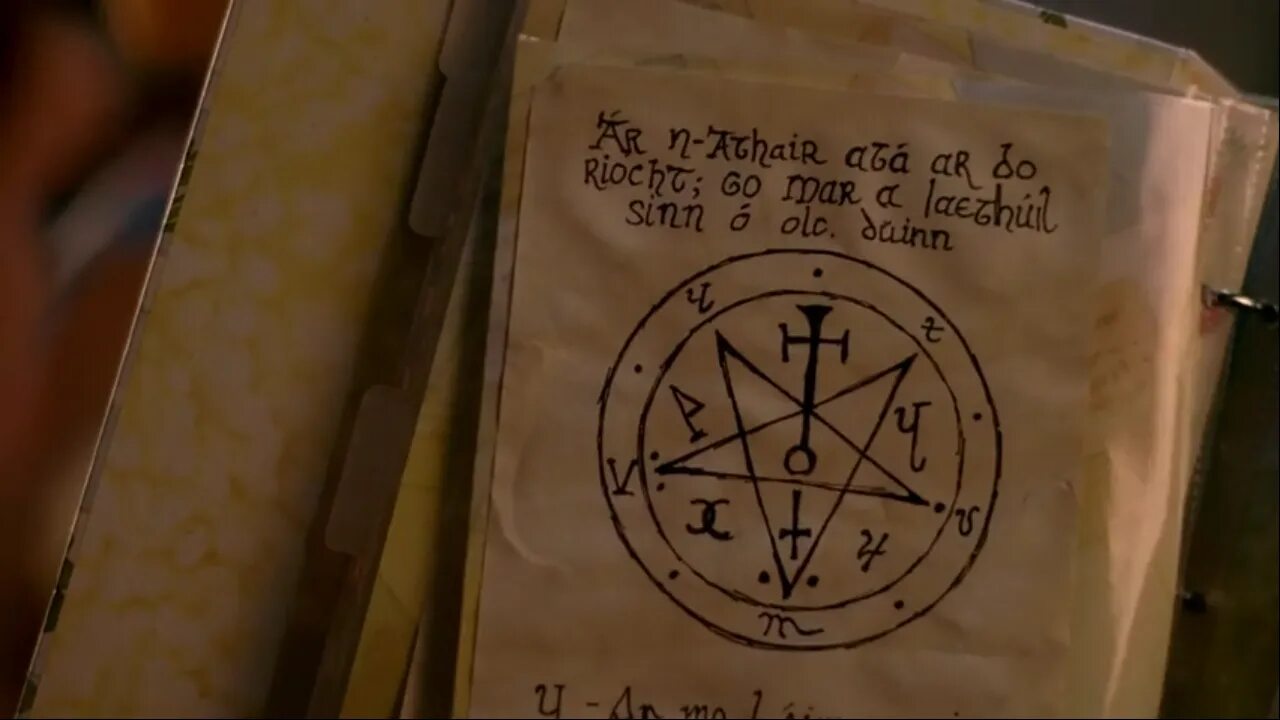 Ár n-Athair atá ar do
Riocht; go mar a laethúil
sinn ó olc. dainn